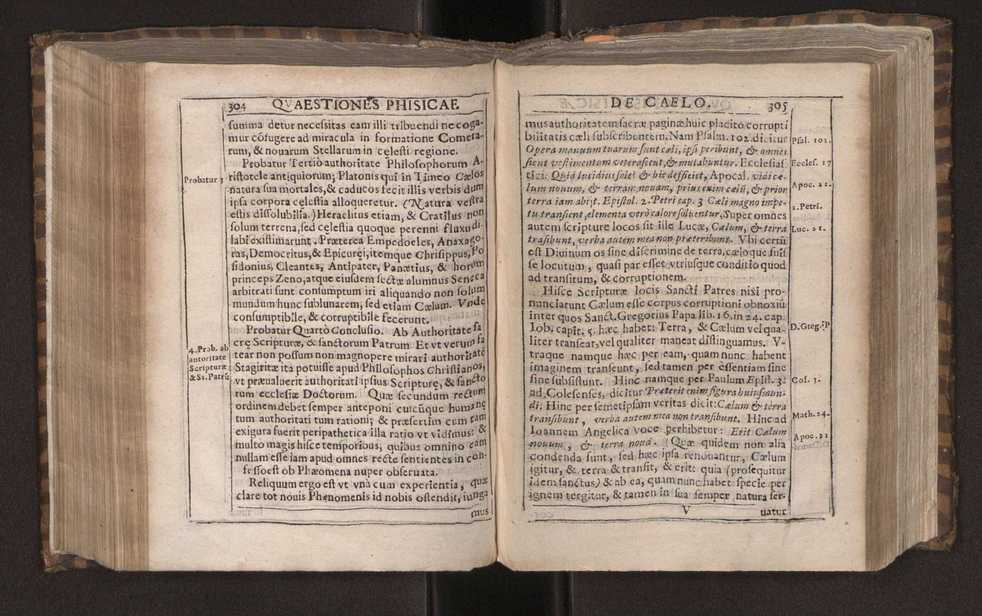 304 QVAESTIONES PHISICAE
summa detur necessitas eam illi tribuendi ne coga-
mur cõfugere ad miracula in formatione Cometa-
rum, & nouarum Stellarum in cęlesti regione.
Probatur Tertiò authoritate Philosophorum A-
Probatur 3
ristotele antiquiorum; Platonis qui in Timęo Cælos
natura sua mortales, & caducos fecit illis verbis dum
ipsa corpora cęlestia alloqueretur. (Natura vestra
estis dissolubilia.) Heraclitus etiam, & Cratilus non
solum terrena, sed cęlestia quoque perenni fluxu di-
labi existimarunt. Præterea Empedocles, Anaxago-
ras, Democritus, & Epicurei, itemque Chrisippus, Po
sidonius, Cleantes, Antipater, Panætius, & horum
princeps Zeno, atque eiusdem sectæ alumnus Seneca
arbitrati sunt consumptum iri aliquando non solum
mundum hunc sublunarem, sed etiam Cælum. Vnde
consumptibile, & corruptibile fecerunt.
Probatur Quartò Conclusio. Ab Authoritate sa
4. Prob. ab
autoritate
Scripturæ
& SS. Patrũ
crę Scripturæ, & sanctorum Patrum. Et vt verum fa
tear non possum non magnopere mirari authoritatẽ
Stagiritæ ita potuisse apud Philosophos Christianos,
vt præualuerit authoritati ipsius Scripturę, & sancto
rum ecclesiæ Doctorum. Quæ secundum rectum
ordinem debet semper anteponi cuicũque humanę
tum authoritati tum rationi; & præsertim cum tam
exigura fuerit peripathetica illa ratio vt vidimus: &
multo magis hisce temporibus, quibus omnino eam
nullam esse iam apud omnes rectè sentientes in con-
fesso est ob Phæomena nuper obseruata.
Reliquum ergo est vt vnà cum experientia, quæ
clare tot nouis Phęnomenis id nobis ostendit, iunga
mus
DE CAELO. 305
mus authoritatem sacræ paginæ huic placito corrupti
bilitatis cæli subscribentem. Nam Psalm. 102. dicitur
Psal. 101.
Opera manuum tuarum sunt cæli, ipsi peribunt, & omnes
sicut vestimentum veterascent, & mutabuntur. Ecclesias
Eccles. 17
tici: Quid lucidius sole? & hic defficiet, Apocal. vidi cæ-
lum nouum, & terram nouam, prius enim cælũ, & prior
Apoc. 21.
terra iam abijt. Epistol. 2. Petri cap. 3 Cæli magno impe-
2. Petri.
tu transient, elementa verò calore soluentur, Super omnes
autem scripture locos sit ille Lucæ, Cælum, & terra
Luc. 21.
trãsibunt, verba autem mea non præteribunt. Vbi certũ
est Diuinum os sine discrimine de terra, cæloque fuis
se locutum, quasi par esset vtriusque conditio quod
ad transitum, & corruptionem.
Hisce Scripturæ locis Sancti Patres nisi pro-
nunciarunt Cælum esse corpus corruptioni obnoxiũ
inter quos Sanct. Gregorius Papa lib. 16. in 24. cap.
D. Greg. P
Iob. capit. 5. hæc habet: Terra, & Cælum vel qua-
liter transeat, vel qualiter maneat distinguamus. V-
traque namque hæc per eam, quam nunc habent
imaginem transeunt, sed tamen per essentiam sine
fine subsistunt. Hinc namque per Paulum Epist. 3.
ad Colesenses, dicitur Præterit enim figura huius mun-
Col. 3.
di; Hinc per semetipsam veritas dicit: Cælum & terra
transibunt, verba autem mea non transibunt. Hinc ad
Math. 24.
Ioannem Angelica voce perhibetur: Erit Cælum
nouum, & terra noua. (Quæ quidem non alia
Apoc. 21
condenda sunt, sed hæc ipsa renouantur, Cælum
igitur, & terra & transit, & erit: quia (prosequitur
idem sanctus) & ab ea, quam nunc habet specie per
ignem tergitur, & tamen in sua semper natura ser-
V uatur